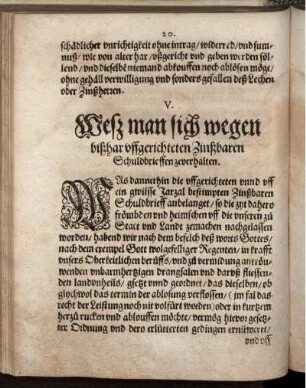 20.
schädlicher vnrichtigkeit ohne intrag/ widerred/ vnd sum-
nuß/ wie von alter har/ vßgericht vnd geben werden söl-
lend/ vnd dieselbe niemand abkouffen noch ablösen möge/
ohne gehäll verwilligung vnd sonders gefallen deß Lechen
oder Zinßherren.
V.
Wesz man sich wegen
bißhar vffgerichteten Zinßbaren
Schuldbrieffen zeverhalten.
WAs dannethin die vffgerichteten vnnd vff
ein gwüsse Jarzal bestimpten Zinßbaren
Schuldbrieff anbelanget/ so die zyt daher
frömbden vnd heimschen vff die vnseren zu
Statt vnd Landt zemachen nachgelassen
worden/ habend wir nach dem befelch deß worts Gottes/
nach dem exempel Gott wolgefelliger Regenten/ in krafft
vnsers Oberkeitlichen berüffs/ vnd zu vermydung antröu-
wenden vnbarmhertzigen drangsalen vnd daruß fliessen-
den landtsunheils/ gsetzt vnnd geordnet/ das dieselben/ ob
glychwol das termin der ablosung verflossen/ (im fal das
recht der Leistung noch nit volfürt worden) oder in kurtzem
herzu rucken vnd ablouffen möchte/ vermög hievor gesetz-
ter Ordnung vnd dero erlüterten gedingen ernüweret/
vnd vff